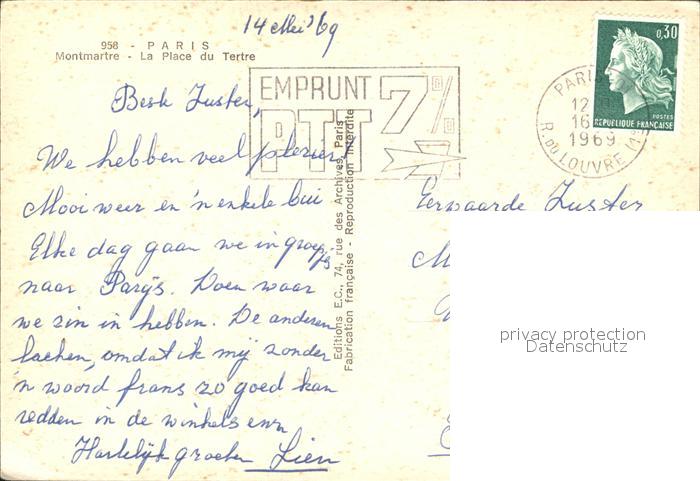 14 Mei '69
958 - PARIS
Montmartre - La Place du Tertre
Besk Zuster,
We hebben veel plezier,
Mooi weer en 'n enkele bui
Elke dag gaan we in groepjs
naar Parijs. Doen waar
we zin in hebben. De anderen
lachen, omdat ik mij zonder
'n woord frans zo goed kan
redden in de winkels enn
Hartelijk groeten Lien
Editions E.C., 74, rue des Archives, Paris
Fabrication française - Reproduction Interdite
EMPRUNT
PTT 7%
PARIS
12
16
1969
R. DU LOUVRE (1er)
0,30
POSTES
REPUBLIQUE FRANÇAISE
Eerwaarde Zuster
M
privacy protection
Datenschutz